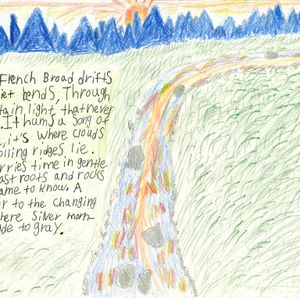 French Broad drifts
iet bends, Through
tain light, that never
. It hums a song of
, it's where clouds
olling ridges lie.
rries time in gentle
ast roots and rocks
ame to know. A
r to the changing
here silver morn-
ade to gray.